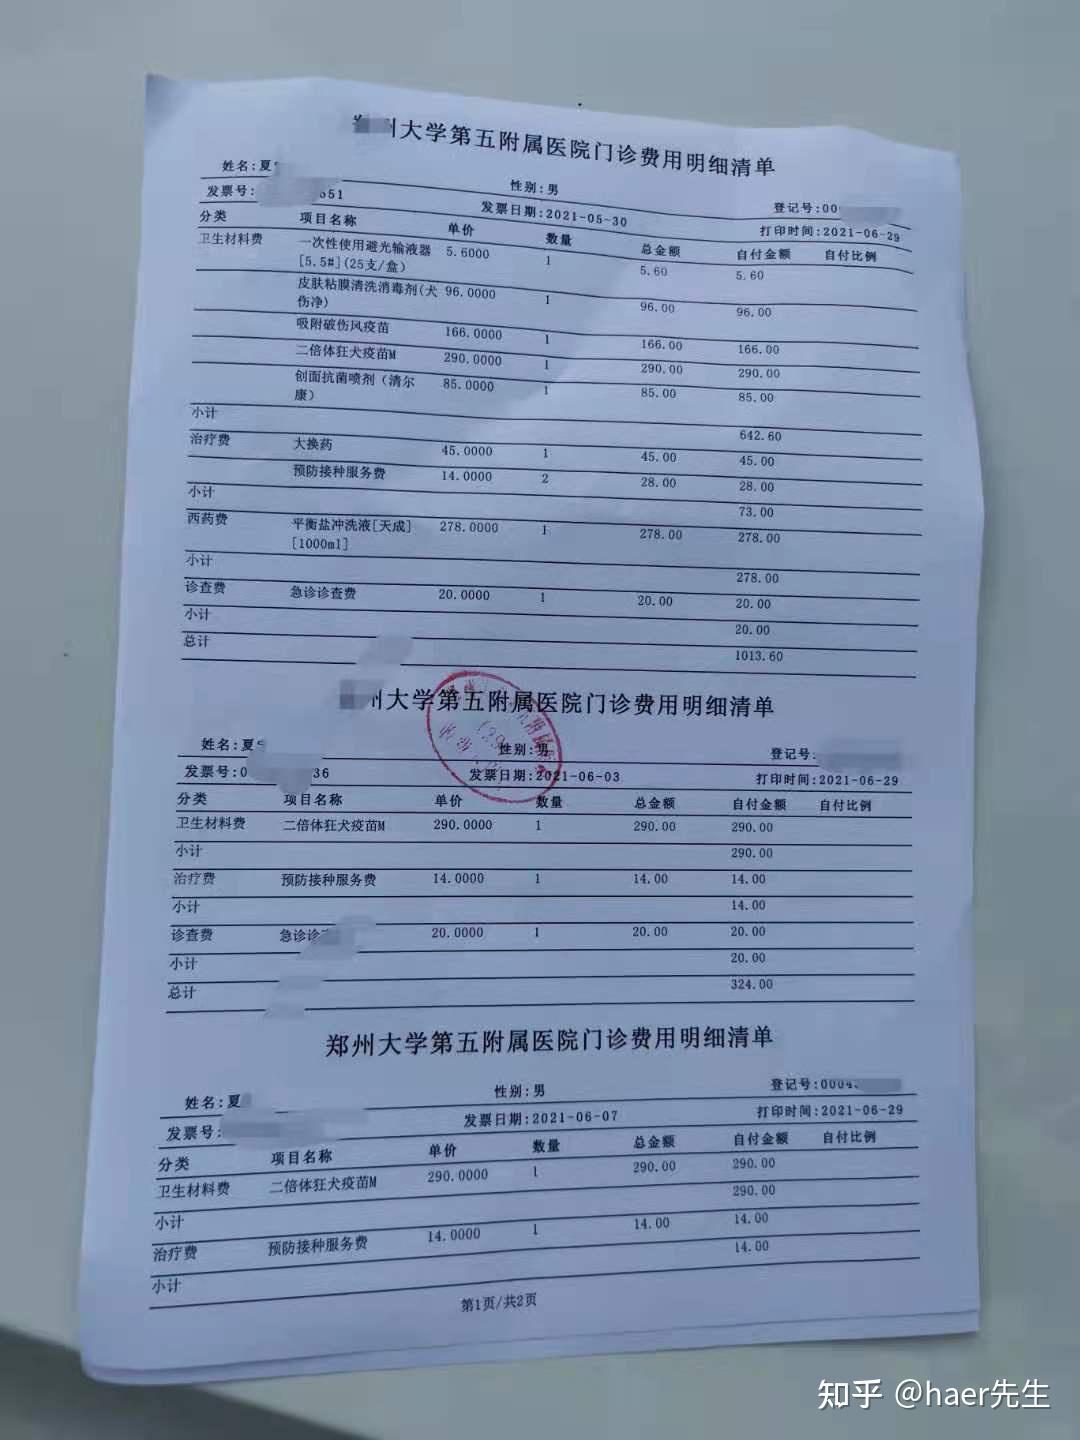 州大学第五附属医院门诊费用明细清单
姓名:夏 性别:男 登记号:00
发票号: 651 发票日期:2021-05-30 打印时间:2021-06-29
分类 项目名称 单价 数量 总金额 自付金额 自付比例
卫生材料费 一次性使用避光输液器 5.6000 1 5.60 5.60
[5.5#](25支/盒)
皮肤粘膜清洗消毒剂(犬 96.0000 1 96.00 96.00
伤净)
吸附破伤风疫苗 166.0000 1 166.00 166.00
二倍体狂犬疫苗M 290.0000 1 290.00 290.00
创面抗菌喷剂（清尔 85.0000 1 85.00 85.00
康）
小计 642.60
治疗费 大换药 45.0000 1 45.00 45.00
预防接种服务费 14.0000 2 28.00 28.00
小计 73.00
西药费 平衡盐冲洗液[天成] 278.0000 1 278.00 278.00
[1000ml]
小计 278.00
诊查费 急诊诊查费 20.0000 1 20.00 20.00
小计 20.00
总计 1013.60
州大学第五附属医院门诊费用明细清单
姓名:夏 性别:男 登记号:
发票号:0 36 发票日期:2021-06-03 打印时间:2021-06-29
分类 项目名称 单价 数量 总金额 自付金额 自付比例
卫生材料费 二倍体狂犬疫苗M 290.0000 1 290.00 290.00
小计 290.00
治疗费 预防接种服务费 14.0000 1 14.00 14.00
小计 14.00
诊查费 急诊诊 20.0000 1 20.00 20.00
小计 20.00
总计 324.00
郑州大学第五附属医院门诊费用明细清单
姓名:夏 性别:男 登记号:0004
发票号: 发票日期:2021-06-07 打印时间:2021-06-29
分类 项目名称 单价 数量 总金额 自付金额 自付比例
卫生材料费 二倍体狂犬疫苗M 290.0000 1 290.00 290.00
小计 290.00
治疗费 预防接种服务费 14.0000 1 14.00 14.00
小计 14.00
第1页/共2页
知乎 @haer先生